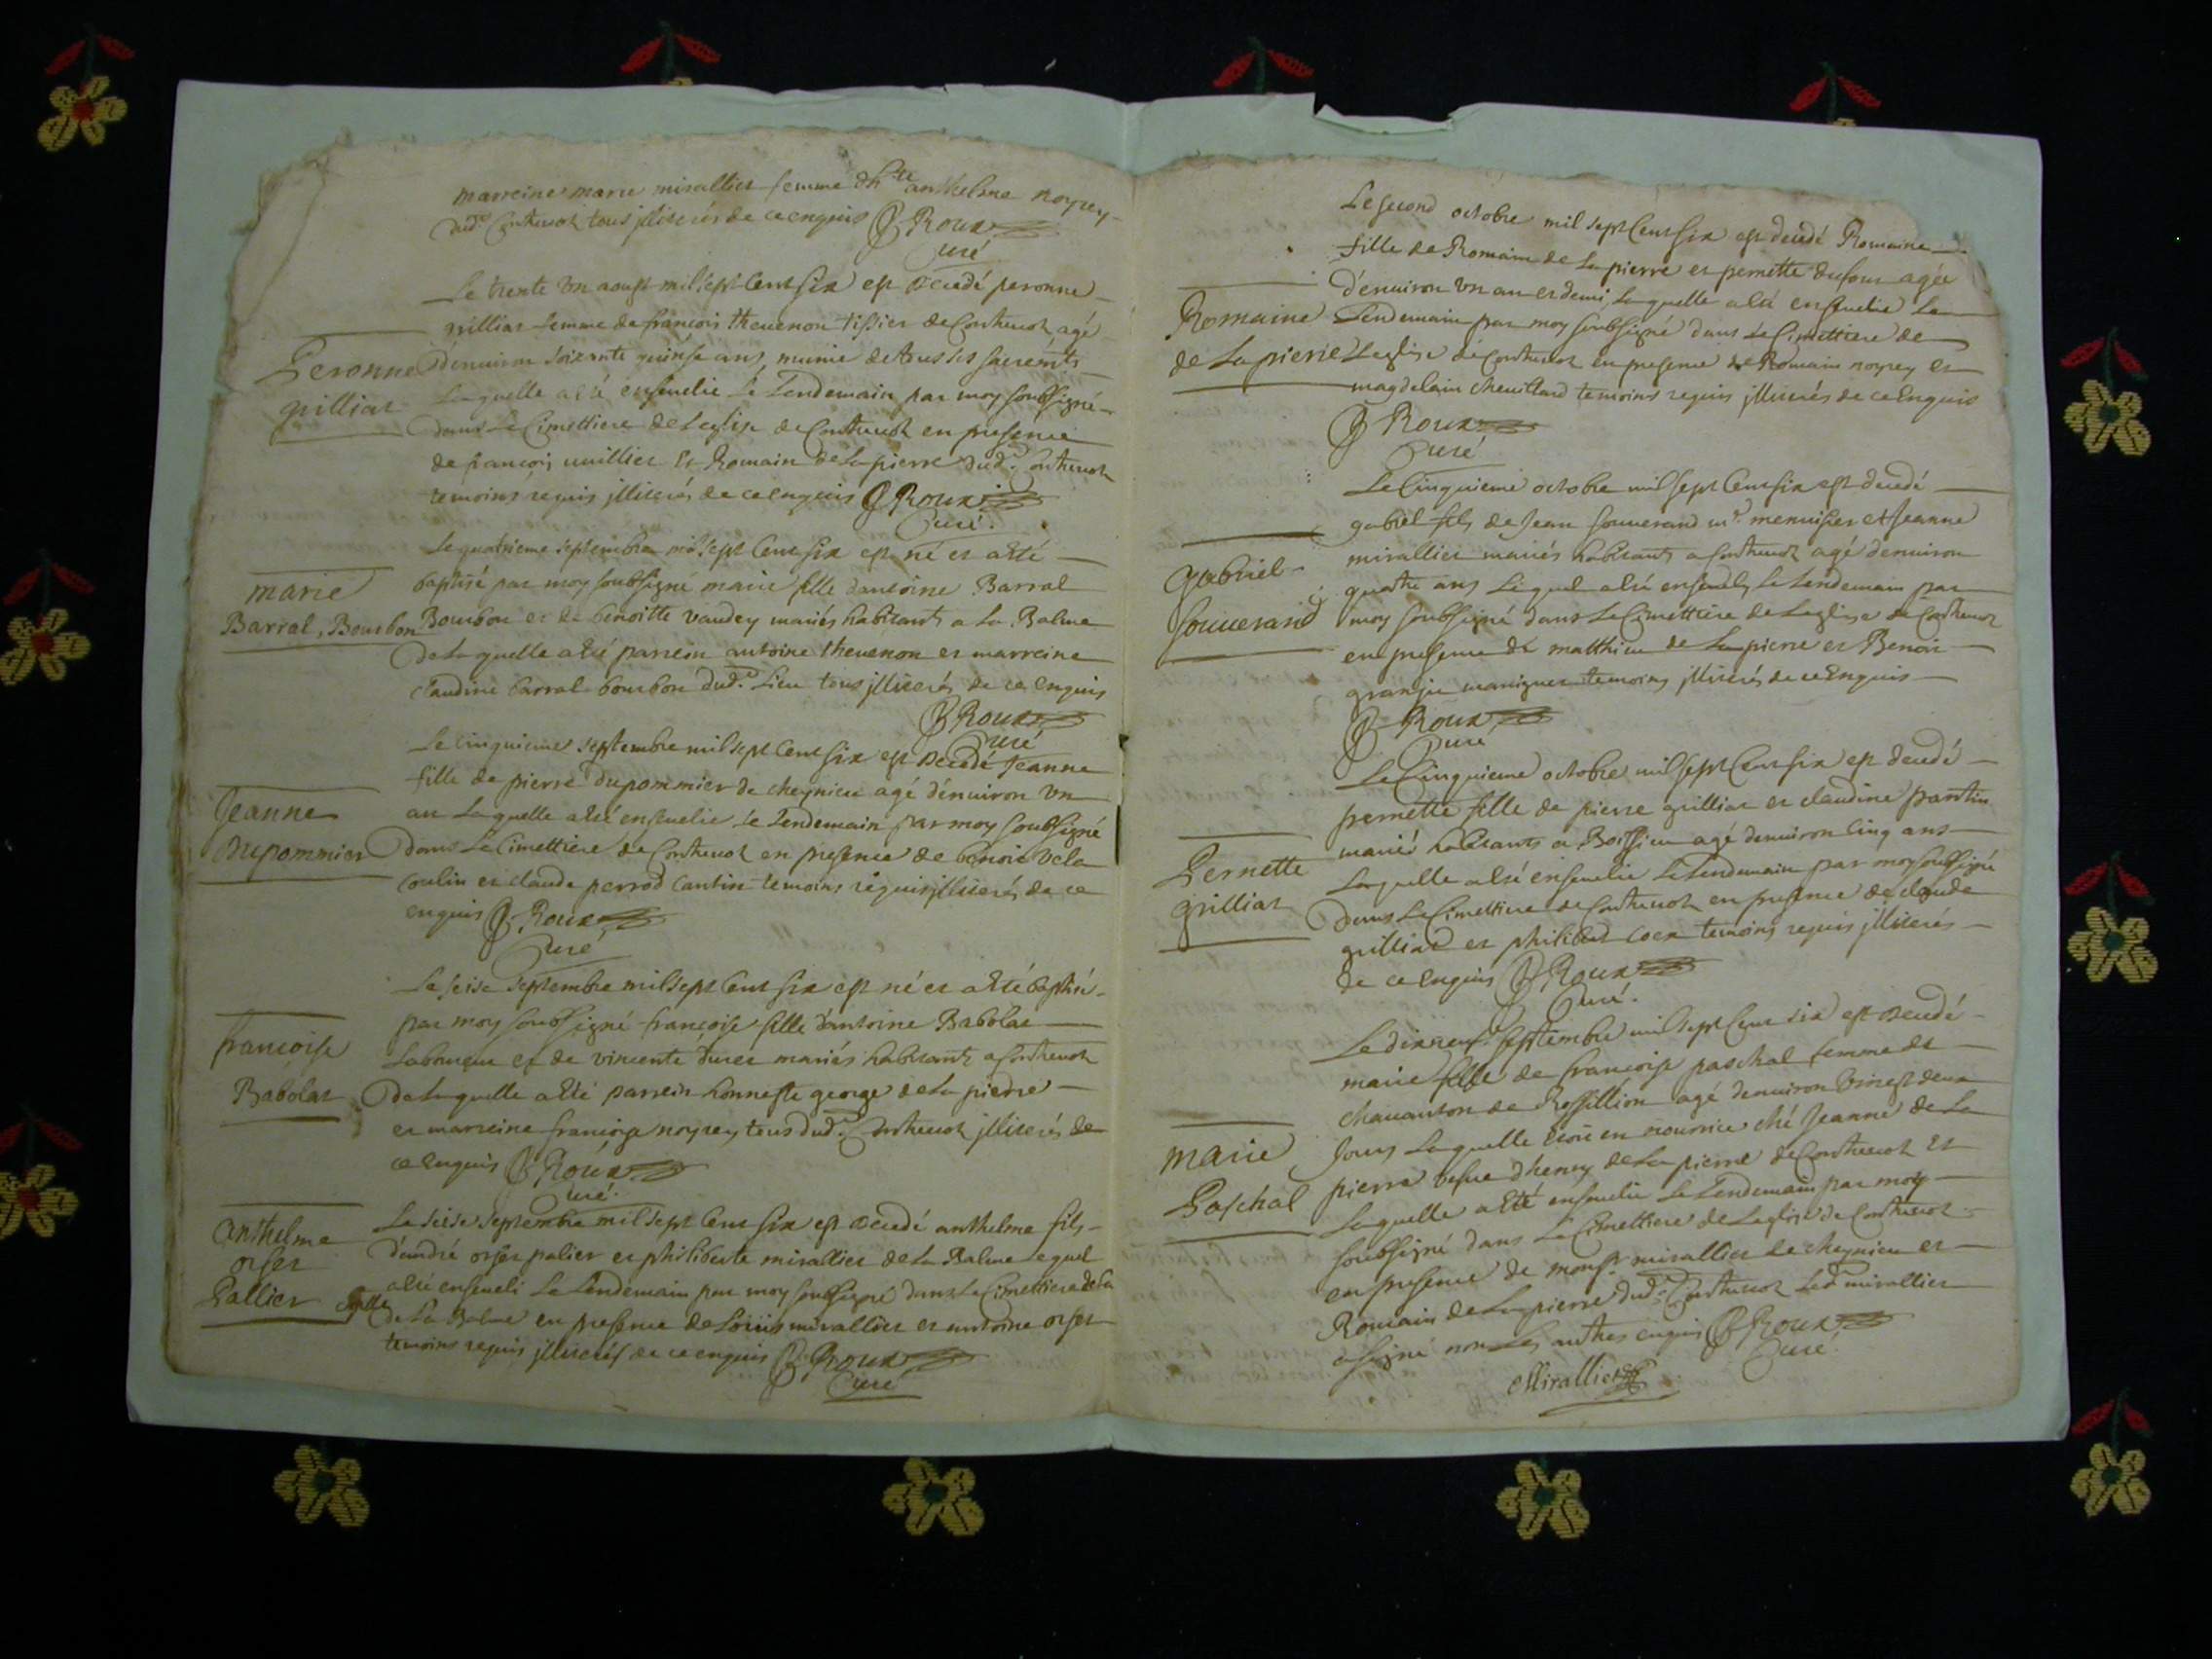 marreine marie mirallier femme dh.te anthelme noyrey
dud. Contrevoz tous illiterés de ce enquis B Roux
Curé
Le trente un aoust mil sept cent six est decedé peronne
grilliat femme de francois thevenon tissier de Contrevoz agé
Peronne
grilliat
d'environ soixante quinse ans, munie de tous ses sacrem.ts
laquelle a esté ensevelie le lendemain par moy soubsigné
dans le Cimettiere de leglise de Contrevoz en presence
de francois vuillier et Romain de la pierre dud. Contrevoz
temoins requis illiterés de ce enquis B Roux
Curé.
marie
Barral, Bourbon
Le quatrieme septembre mil sept cent six est né et a esté
baptisé par moy soubsigné marie fille dantoine Barral
Bourbon et de benoitte vaudey mariés habitants a la Balme
de laquelle a esté parrein antoine thevenon et marreine
claudine barral bourbon dud. lieu tous illiterés de ce enquis
B Roux
Curé
Jeanne
dupommier
Le cinquieme septembre mil sept cent six est decedé Jeanne
fille de pierre dupommier de cheynieu agé d'environ un
an laquelle a esté ensevelie le lendemain par moy soubsigné
dans le Cimettiere de Contrevoz en presence de benoit
coulin et claude perrod cantin temoins requis illiterés de ce
enquis B Roux
Curé
francoise
Babolat
Le seise septembre mil sept cent six est né et a esté baptisé
par moy soubsigné francoise fille dantoine Babolat
laboureur et de vincente mariés habitants a Contrevoz
de laquelle a esté parrein honneste george de la pierre
et marreine francoise noyrey tous dud. Contrevoz illiterés de
ce enquis B Roux
Curé.
anthelme
orset
Pallier
Le seise septembre mil sept cent six est decedé anthelme fils
d'andré orset palier et philiberte mirallier de la Balme lequel
a esté enseveli le lendemain par moy soubsigné dans le Cimettiere de la
de la Balme en presence de Louis mirallier et antoine orset
temoins requis illiterés de ce enquis B Roux
Curé
Le second octobre mil sept cent six est decedé Romaine
fille de Romain de la pierre et pernette dufour agée
d'environ un an et demi laquelle a esté ensevelie le
Romaine
de la pierre
lendemain par moy soubsigné dans le Cimettiere de
leglise de Contrevoz en presence de Romain noyrey et
magdelain chevillard temoins requis illiterés de ce enquis
B Roux
Curé
Gabriel
souverand
Le Cinquieme octobre mil sept cent six est decedé
gabriel fils de Jean souverand m. menuisier et Jeanne
mirallier mariés habitants a Contrevoz agé denviron
quatre ans lequel a esté ensevely le lendemain par
moy soubsigné dans le Cimettiere de leglise de Contrevoz
en presence de matthieu de la pierre et Benoit
granju temoins illiterés de ce enquis
B Roux
Curé
Pernette
grilliat
Le Cinquieme octobre mil sept cent six est decedé
pernette fille de pierre grilliat et claudine pantin
mariés habitants a Boissieu agé denviron cinq ans
laquelle a esté ensevelie le lendemain par moy soubsigné
dans le Cimettiere de Contrevoz en presence de claude
grilliat et philibert temoins requis illiterés
de ce enquis B Roux
Curé.
marie
Paschal
Le dixneuf septembre mil sept cent six est decedé
marie fille de francoise paschal femme de
de Rossillion agé denviron vingt deux
Jours laquelle etoit en nourrice ché Jeanne de la
pierre vefve dheney de la pierre de Contrevoz et
laquelle a esté ensevelie le lendemain par moy
soubsigné dans le Cimettiere de leglise de Contrevoz
en presence de mons.r mirallier de cheynieu et
Romain de la pierre dud. Contrevoz led. mirallier
a signé non les autres enquis B Roux
Curé
Mirallier